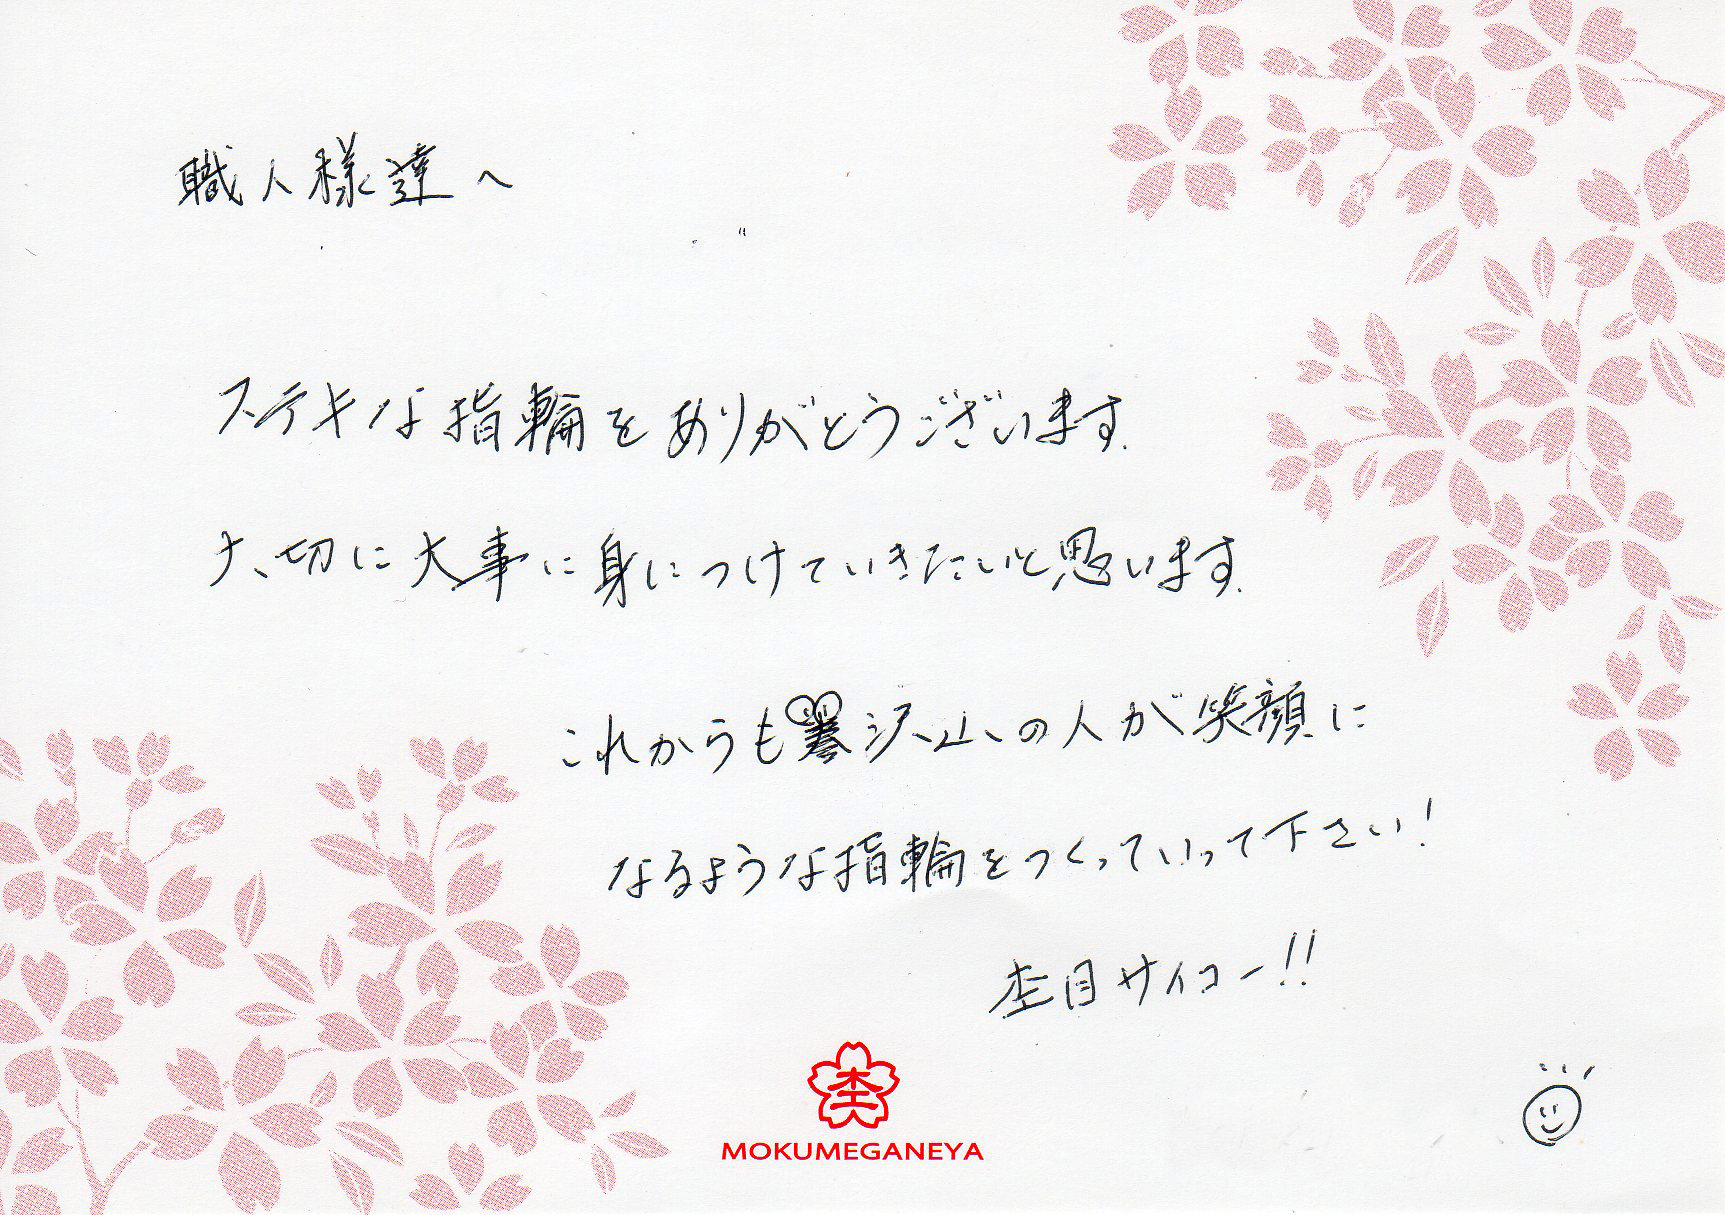 職人様達へ
ステキな指輪をありがとうございます.
大切に大事に身につけていきたいと思います.
これからも沢山の人が笑顔に
なるような指輪をつくっていって下さい!
杢目サイコー!!
杢
MOKUMEGANEYA